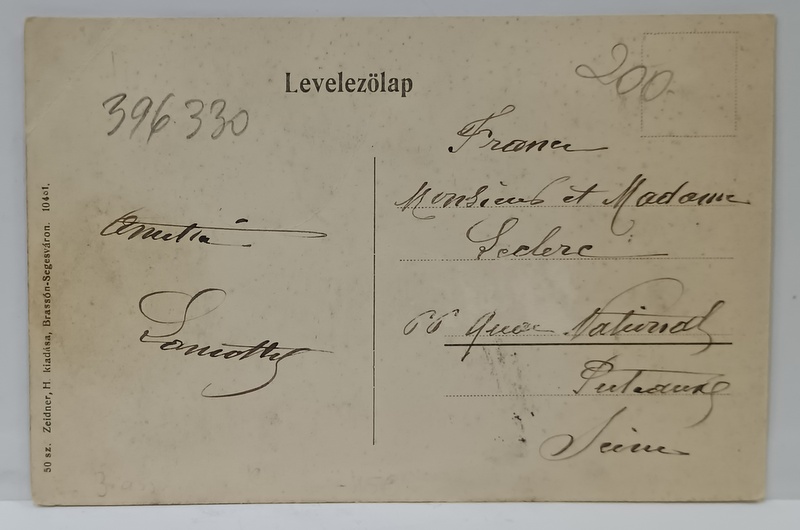 Levelezőlap
200
396.330
France
Monsieur et Madame
Leclerc
66 Quai National
Puteaux
Seine
Amitié
Lamotthe
50 sz. Zeidner, H. kiadása, Brassón-Segesváron. 10401.